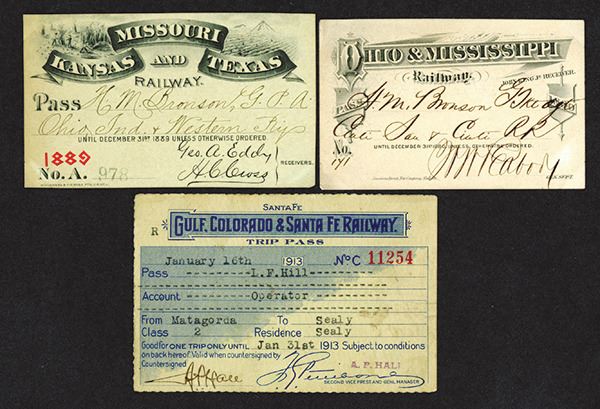 MISSOURI
KANSAS AND TEXAS
RAILWAY.
Pass H. M. Bronson, G. P. A.
Ohio, Ind. & Western Ry
UNTIL DECEMBER 31ST 1889 UNLESS OTHERWISE ORDERED.
1889
Geo. A. Eddy
RECEIVERS.
No. A. 978
H. C. Cross
OHIO & MISSISSIPPI
Railway.
JOHN KING JR. RECEIVER.
PASS H. M. Bronson
UNTIL DECEMBER 31ST 1880, UNLESS OTHERWISE ORDERED.
No.
171
W. W. Peabody
GEN. SUPT.
SANTA FE
GULF, COLORADO & SANTA FE RAILWAY.
R
TRIP PASS
January 16th 1913 No C 11254
Pass L.F.Hill
Account Operator
From Matagorda To Sealy
Class 2 Residence Sealy
GOOD FOR ONE TRIP ONLY UNTIL Jan 31st 1913 Subject to conditions
on back hereof. Valid when countersigned by
Countersigned
A. P. HALL
SECOND VICE PREST AND GENL MANAGER